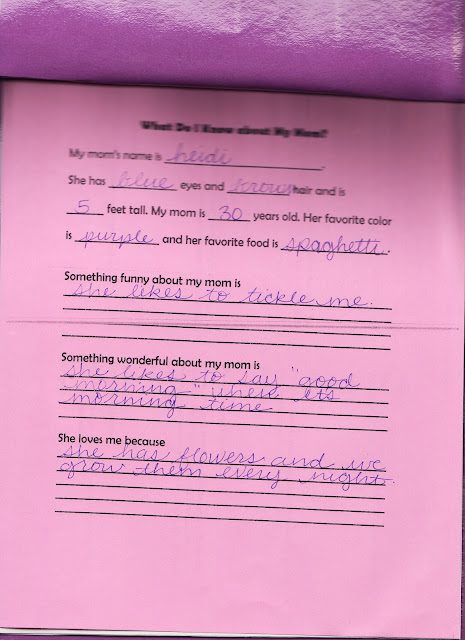 What Do I Know about My Mom?
My mom's name is heidi.
She has blue eyes and brown hair and is
5 feet tall. My mom is 30 years old. Her favorite color
is purple and her favorite food is spaghetti.
Something funny about my mom is
she likes to tickle me.
Something wonderful about my mom is
she likes to say "good
morning" when its
morning time
She loves me because
she has flowers and we
grow them every night.